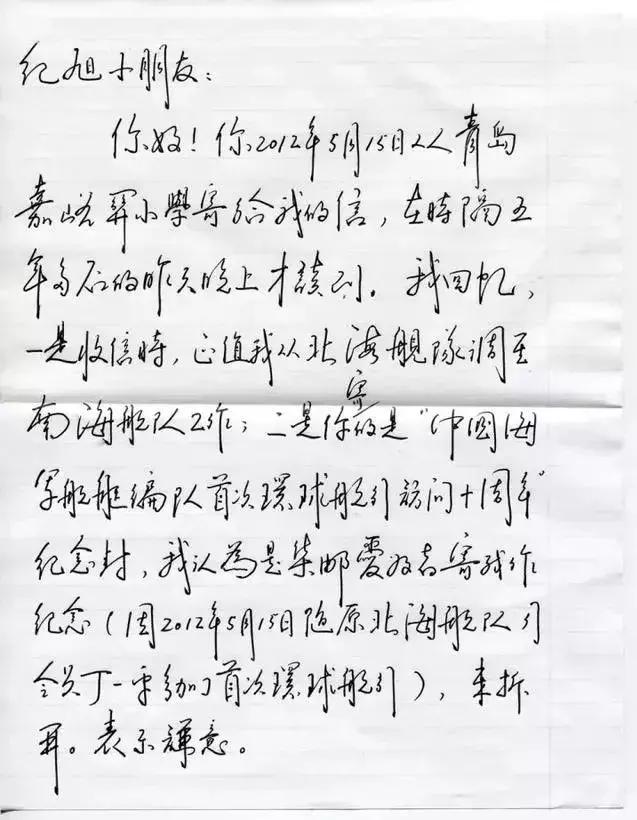 纪旭小朋友：
你好！你2012年5月15日从青岛
嘉峪関小學寄给我的信，在時隔五
年多后的昨天晚上才讀到。我回忆，
一是收信時，正值我从北海舰隊调至
南海舰队工作；二是你寄的是“中國海
军舰艇编队首次環球航行访问十周年”
纪念封，我认為是集邮爱好者寄我作
纪念（因2012年5月15日随原北海舰队司
令员丁一平参加了首次環球航行），未拆
開。表示歉意。